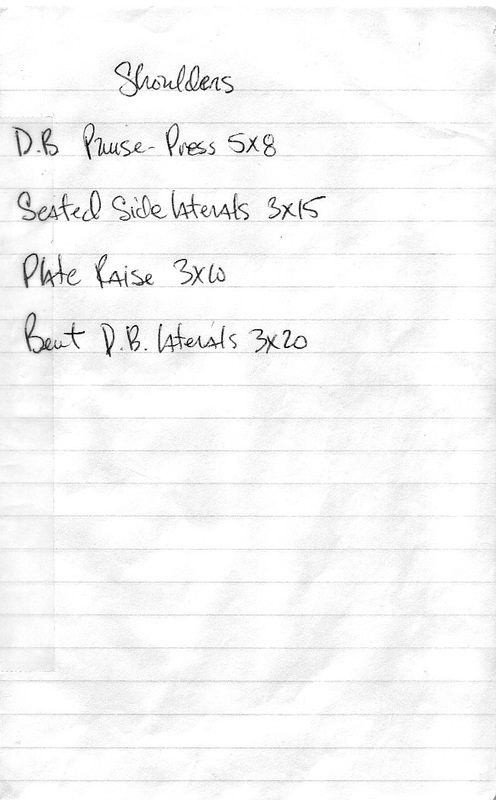 Shoulders
D.B Pause-Press 5x8
Seated Side laterals 3x15
Plate Raise 3x10
Bent D.B. laterals 3x20